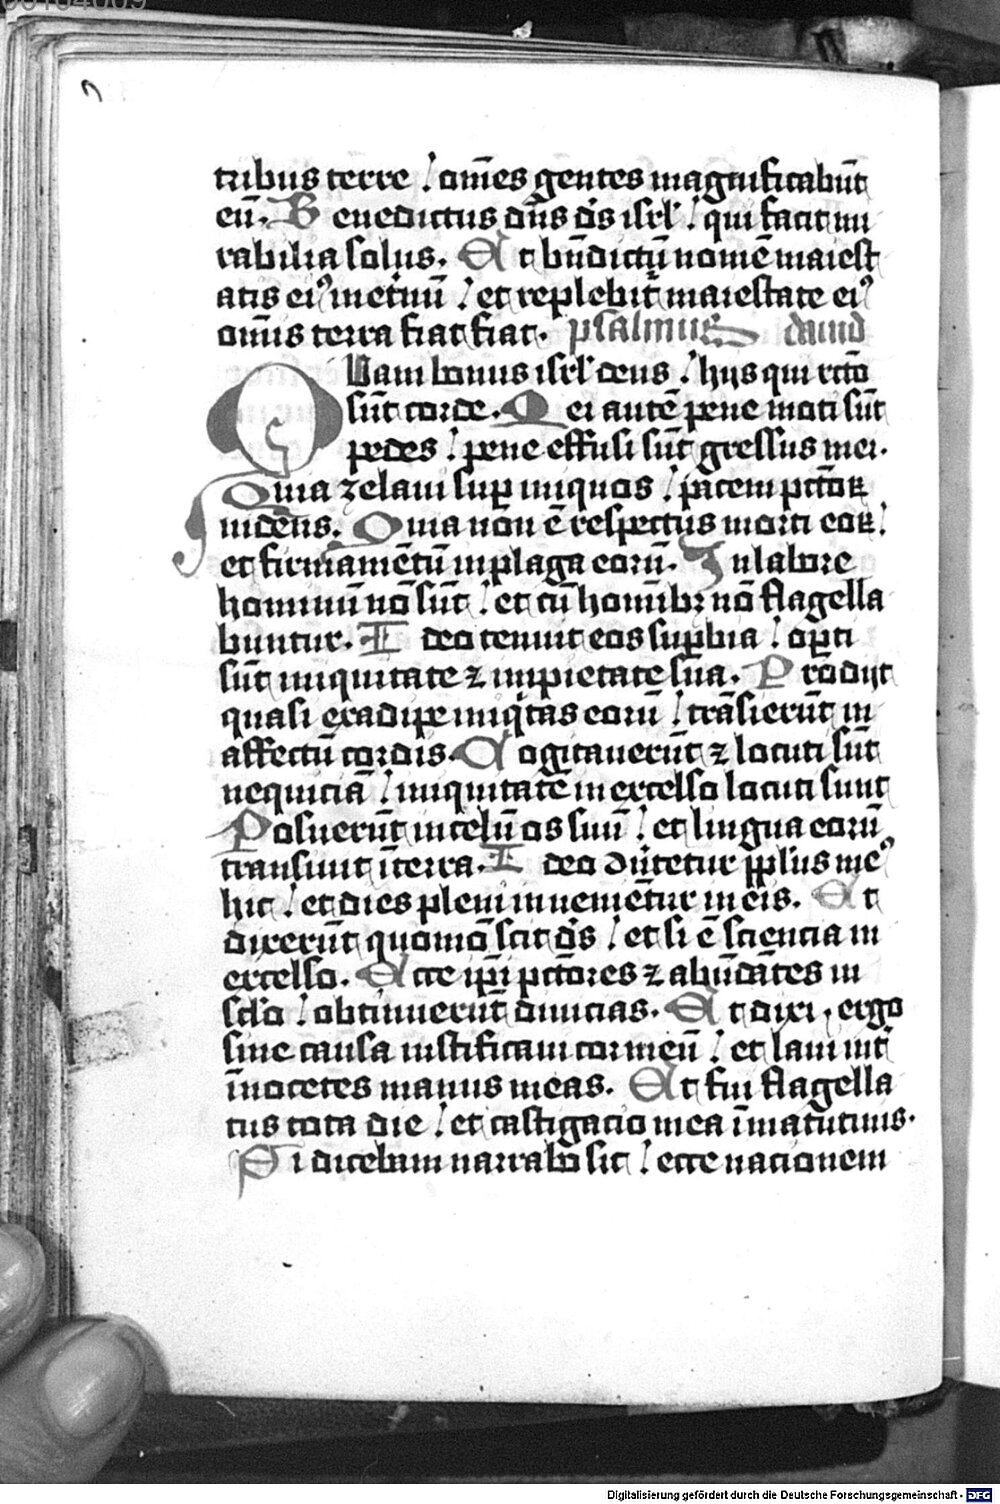 tribus terre / om̄es gentes magnificabūt
eū. Benedictus dn̄s ds̄ isrl̄ / qui facit mi
rabilia solus. Et bn̄dictū nomē maiest
atis eiꝰ ineternū / et replebit̄ maiestate eiꝰ
om̄is terra fiat fiat. psalmus dauid
Quam bonus isrl̄ deus / hijs qui rc̄to
sūt corde. Mei autē pene moti sūt
pedes / pene effusi sūt gressus mei.
Quia zelaui suꝑ iniquos / pacem pctōꝝ
uidens. Quia non ē respectus morti eoꝝ /
et firmamētū in plaga eorū. In labore
hominū nō sūt / et cū hominibꝫ nō flagella
buntur. Ideo tenuit eos suꝑbia / oꝑti
sūt iniquitate ⁊ impietate sua. Prodijt
quasi ex adipe iniqitas eorū / trāsierūt in
affectū cordis. Cogitauerūt ⁊ locuti sūt
nequiciā / iniquitatē in excelso locuti sunt
Posuerūt in celū os suū / et lingua eorū
transiuit ī terra. Ideo ꝯuertetur ppl̄us meꝰ
hic / et dies pleni inuenientur in eis. Et
dixerūt quomō scit ds̄ / et si ē sciencia in
excelso. Ecce ip̄i pctōres ⁊ abūdātes in
sclo / obtinuerūt diuicias. Et dixi, ergo
sine causa iustificaui cor meū / et laui int̄
īnocetes manus meas. Et fui flagella
tus tota die / et castigacio mea ī matutinis.
Si dicebam narrabo sic / ecce nacionem
Digitalisierung gefördert durch die Deutsche Forschungsgemeinschaft - DFG